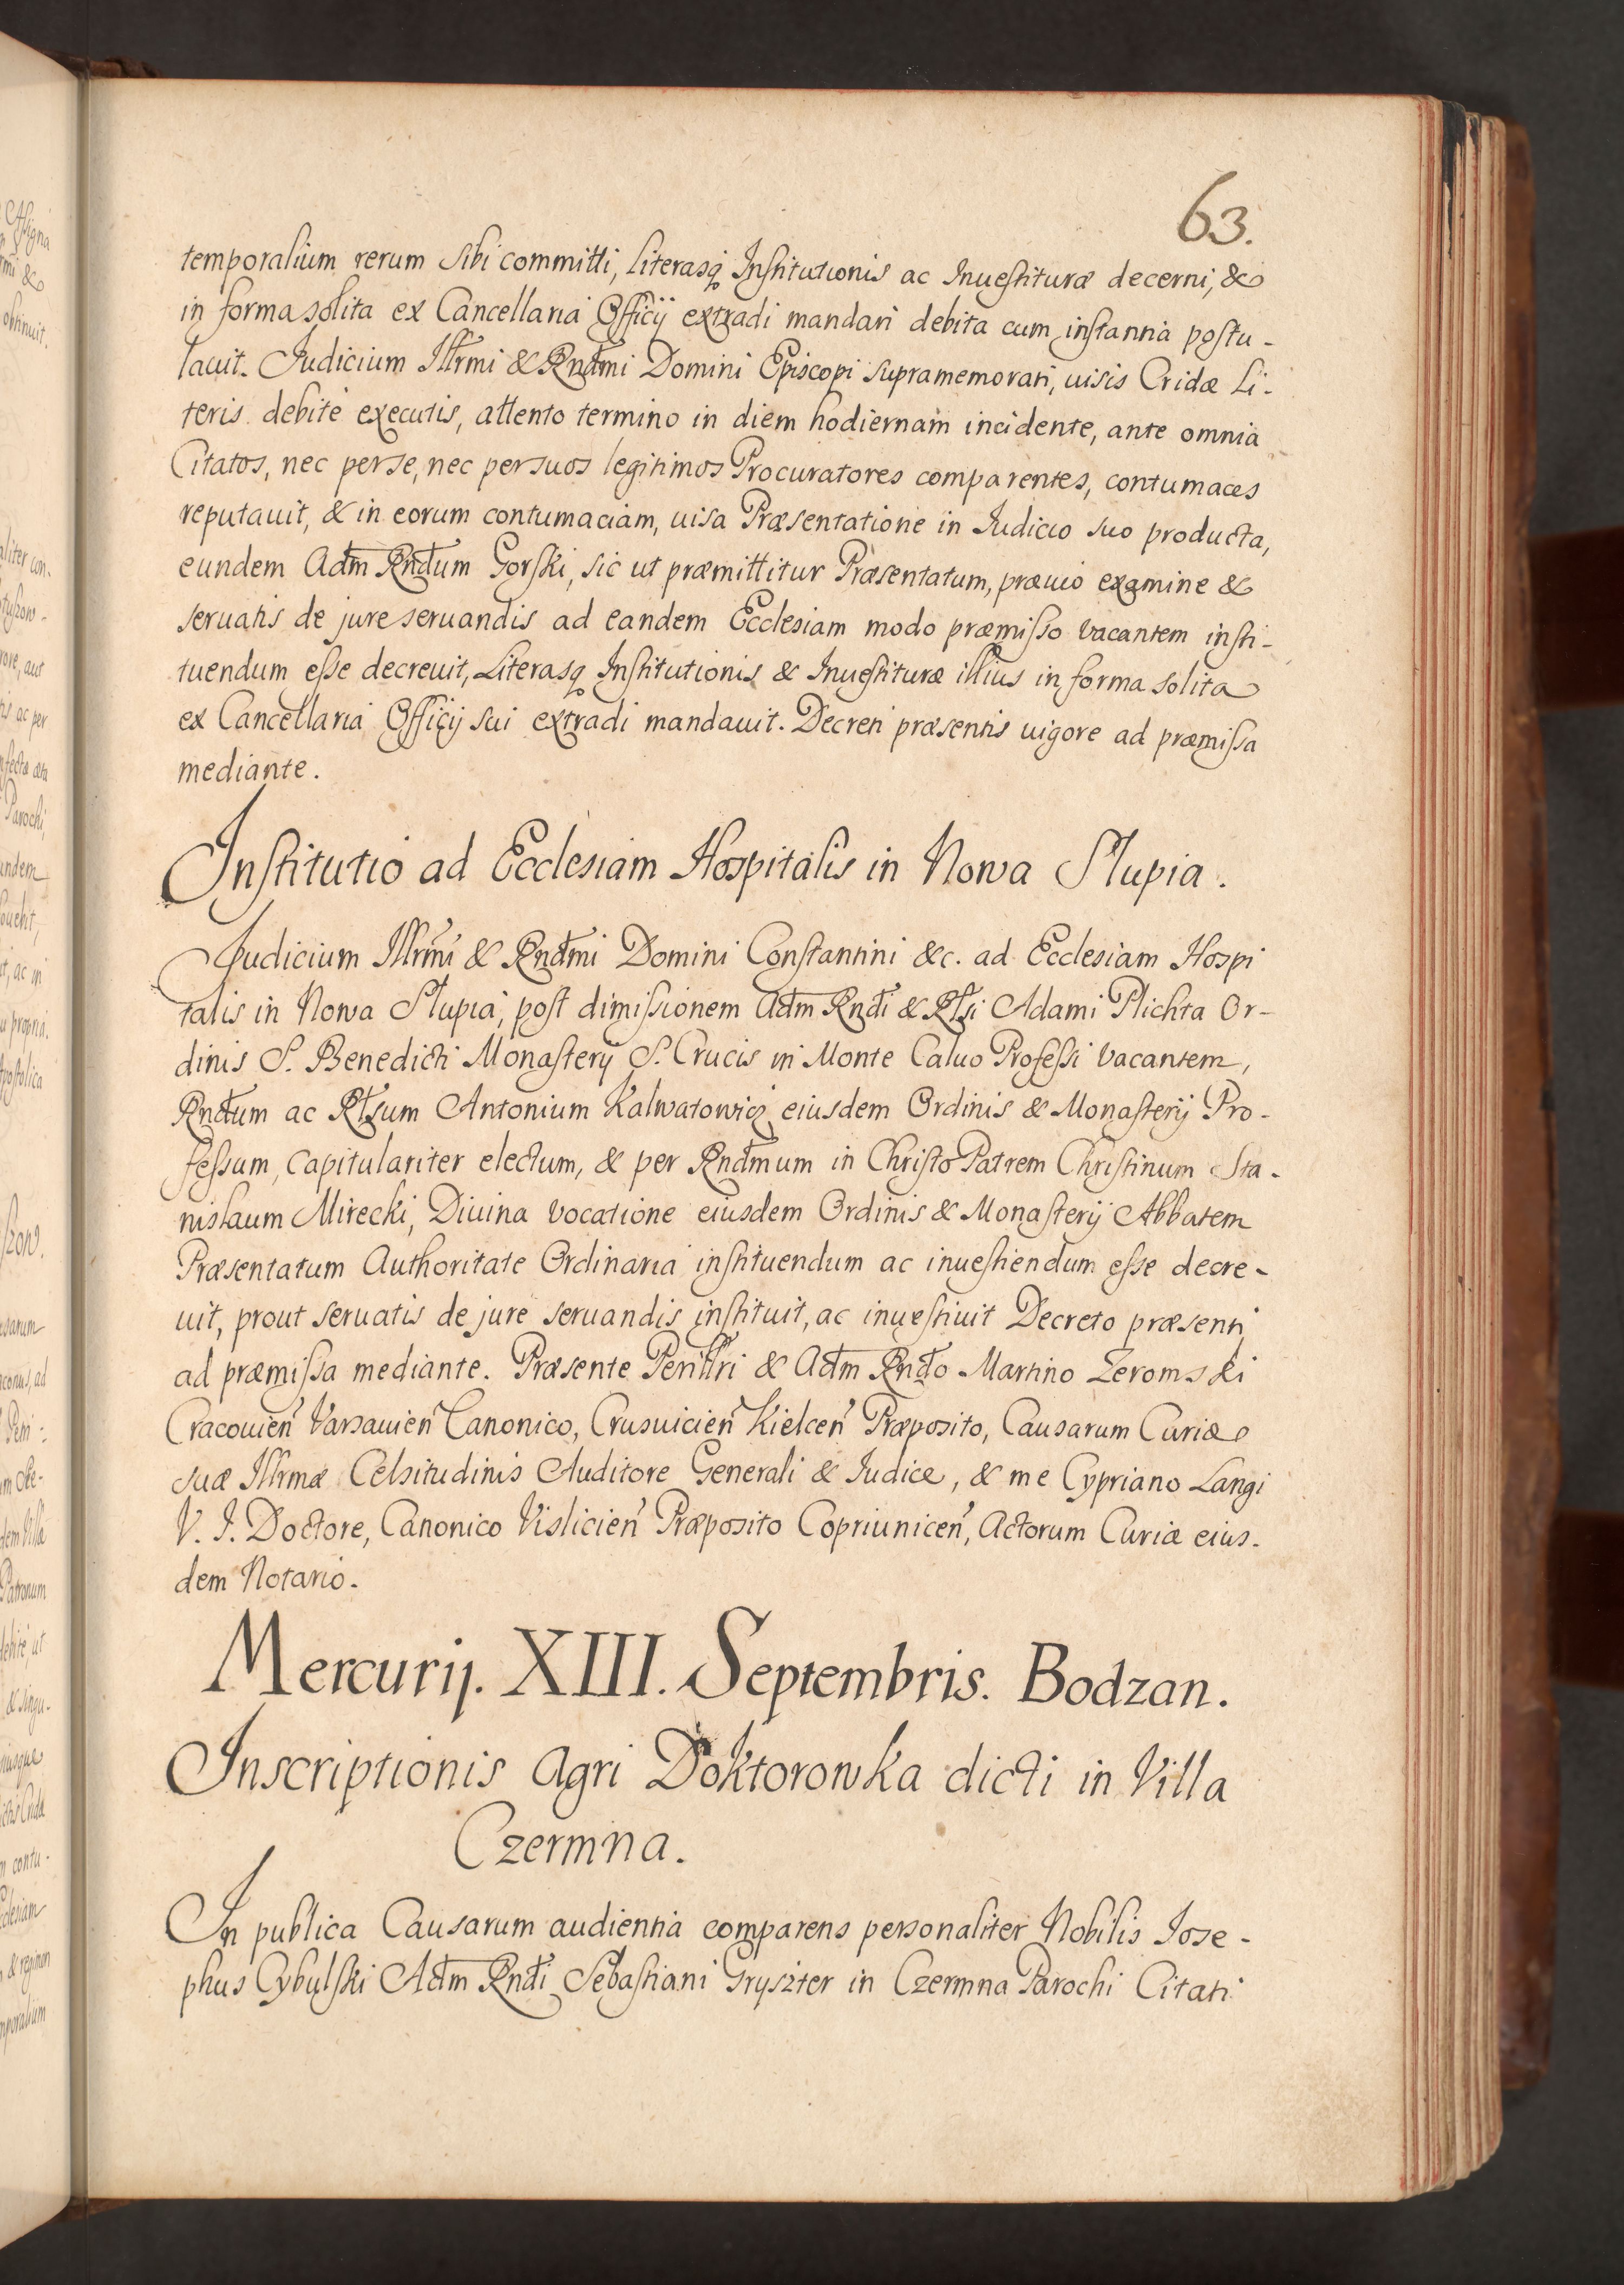 63.
temporalium rerum sibi committi, literasq Institutionis ac Inuestituræ decerni, &
in forma solita ex Cancellaria Officij extradi mandari debita cum instantia postu-
lauit. Judicium Illrmi & Rndmi Domini Episcopi supramemorati, uisis Cridæ Li-
teris debitè executis, attento termino in diem hodiernam incidente, ante omnia
Citatos, nec per se, nec per suos legitimos Procuratores comparentes, contumaces
reputauit, & in eorum contumaciam, uisa Præsentatione in Iudicio suo producta,
eundem Adm Rndum Gorski, sic ut præmittitur Præsentatum, præuio examine &
seruatis de jure seruandis ad eandem Ecclesiam modo præmisso vacantem insti-
tuendum esse decreuit, Literasq Institutionis & Inuestituræ illius in forma solita
ex Cancellaria Officij sui extradi mandauit. Decreti præsentis uigore ad præmissa
mediante.
Institutio ad Ecclesiam Hospitalis in Nowa Slupia.
Judicium Illrmi & Rndmi Domini Constantini &c. ad Ecclesiam Hospi
talis in Nowa Slupia, post dimissionem Adm Rndi & Rlsi Adami Plichta Or-
dinis S. Benedicti Monasterij S. Crucis in Monte Caluo Professi vacantem,
Rndum ac Rlsum Antonium Kalwatowicz eiusdem Ordinis & Monasterij Pro-
fessum, Capitulariter electum, & per Rndmum in Christo Patrem Christinum Sta-
nislaum Mirecki, Diuina vocatione eiusdem Ordinis & Monasterij Abbatem
Præsentatum Authoritate Ordinaria instituendum ac inuestiendum esse decre-
uit, prout seruatis de jure seruandis instituit, ac inuestiuit Decreto præsenti
ad præmissa mediante. Præsente Perillri & Adm Rndo Martino Zeromski
Cracouien Varsauien Canonico, Crusuicien Kielcen Præposito, Causarum Curiæ
suæ Illrmæ Celsitudinis Auditore Generali & Iudice, & me Cypriano Langi
V. I. Doctore, Canonico Vislicien Præposito Copriunicen, Actorum Curiæ eius-
dem Notario.
Mercurij. XIII. Septembris. Bodzan.
Inscriptionis Agri Doktorowka dicti in Villa
Czermna.
In publica Causarum audientia comparens personaliter Nobilis Iose-
phus Cybulski Adm Rndi Sebastiani Gryszter in Czermna Parochi Citati